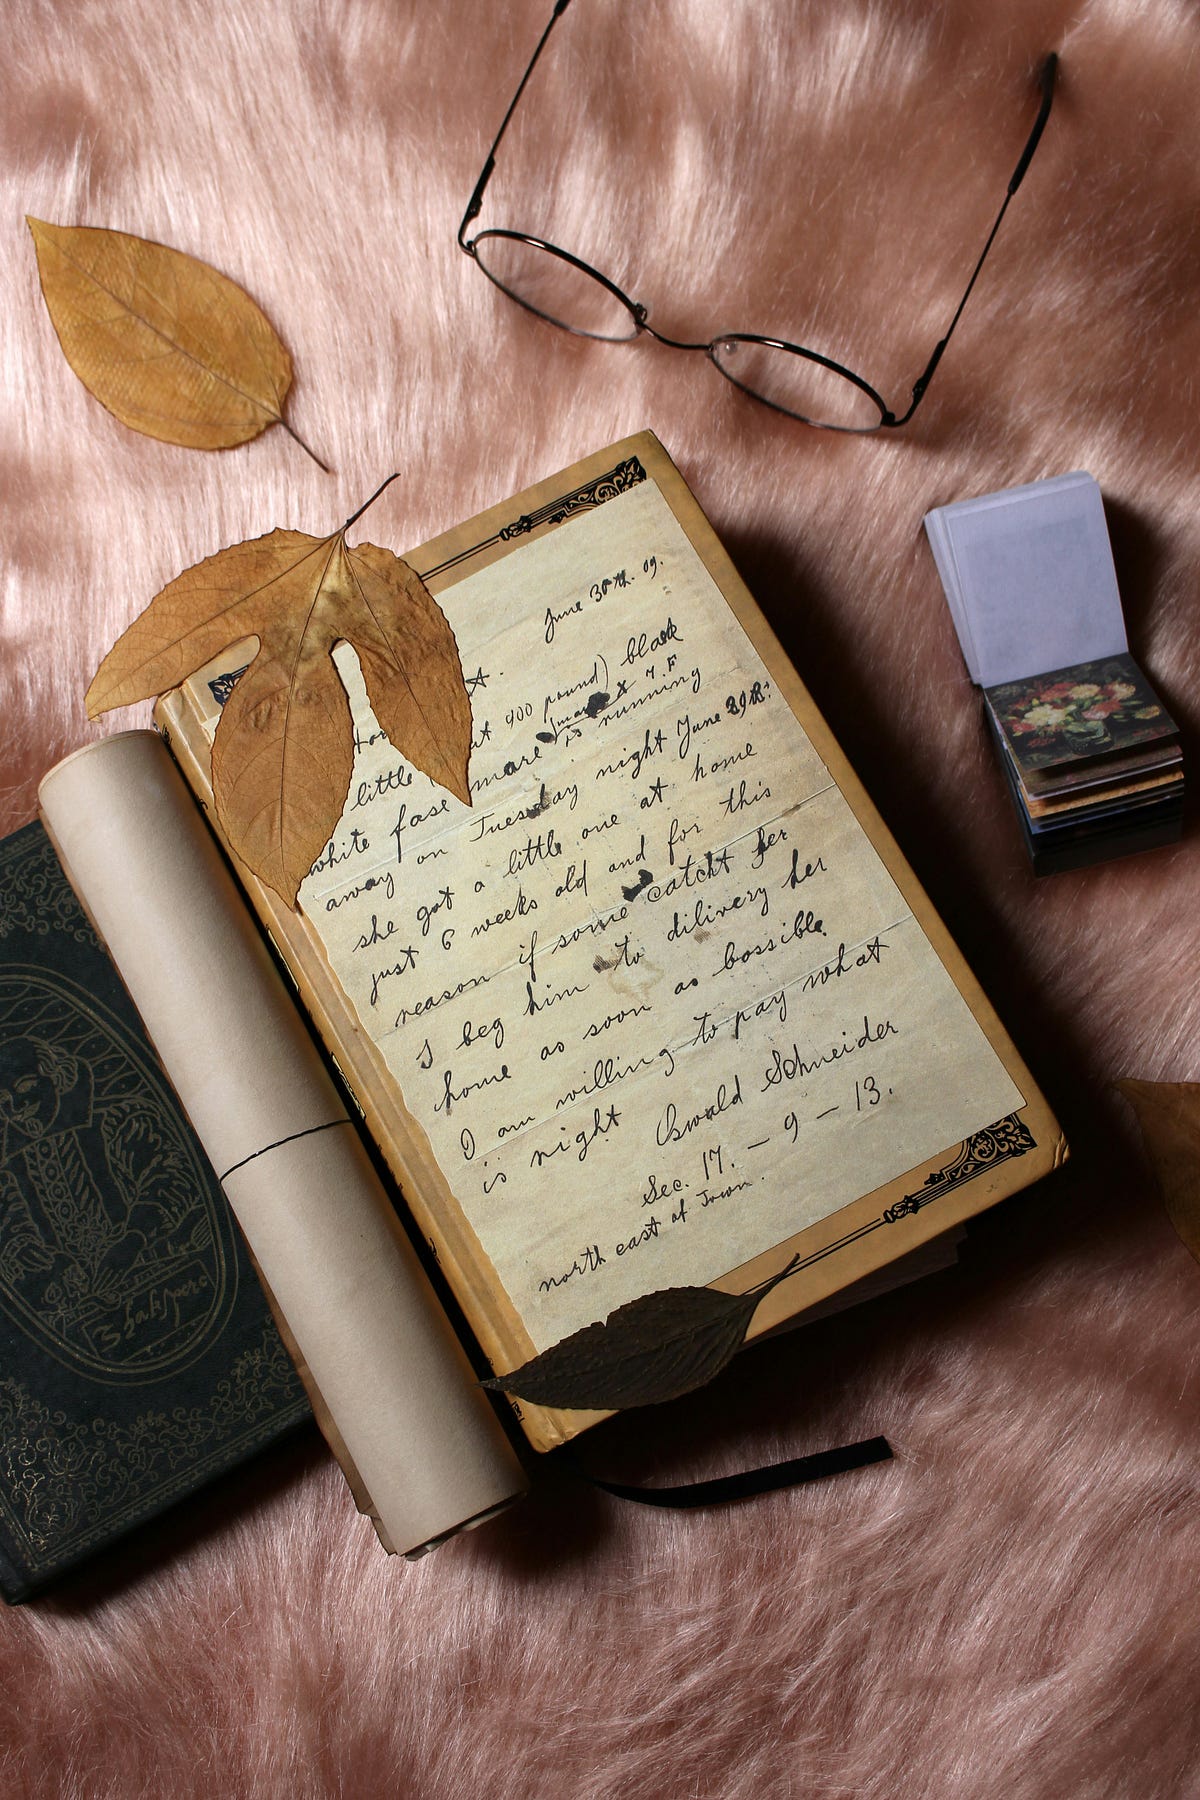 June 30th. 09.
little
ut 900 pound) black
white fase mare (mare X 7 F
is running
away on Tuesday night June 29th.
she got a little one at home
just 6 weeks old and for this
reason if some catcht her
I beg him to dilivery her
home as soon as bossible
I am willing to pay what
is right Oswald Schneider
Sec. 17. – 9 – 13.
north east of Town.
Shakspere